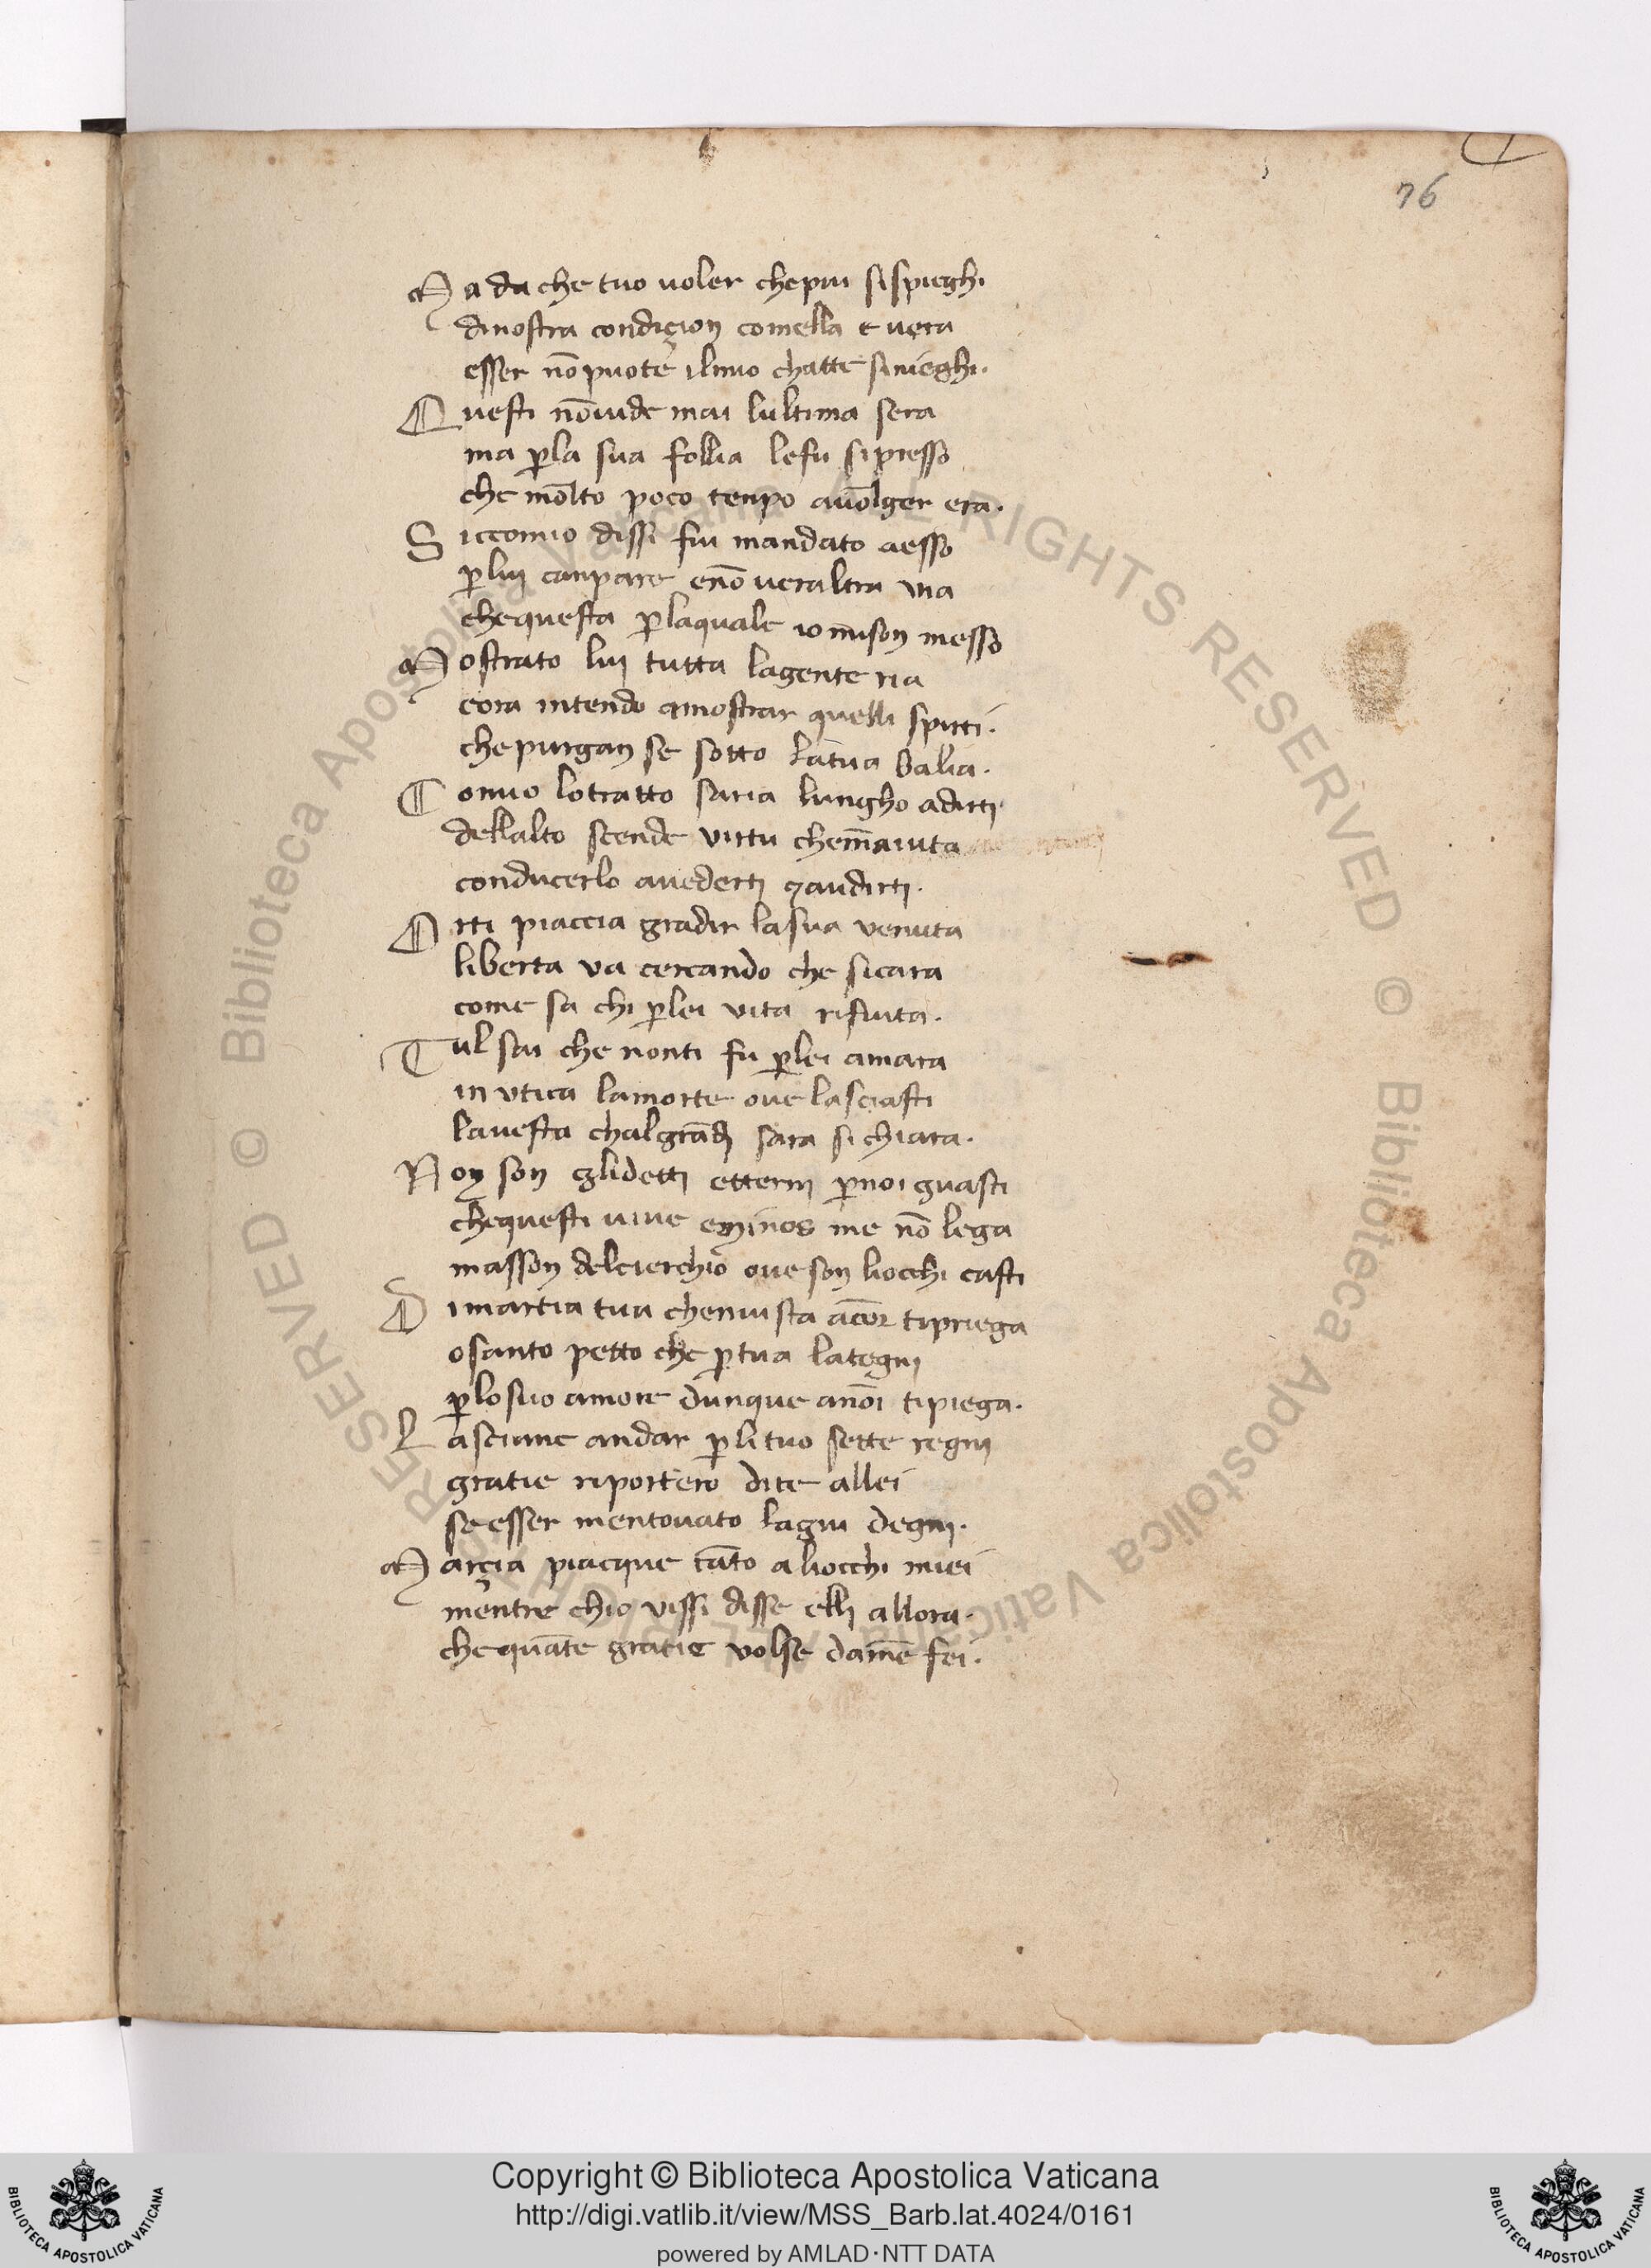 76
Ma da che tuo uoler chepiu sispieghi
dinostra condiçion comella e uera
esser nō puote ilmio chatte sinieghi.
Questi nōuide mai lultima sera
ma ꝑla sua follia lefu sipresso
che mōlto poco tenpo auōlger era.
Siccomio dissi fui mandato aesso
ꝑ lui canpare enō ueraltra uia
chequesta ꝑ laquale io mison messo
Mostrato lui tutta lagente ria
eora intendo amostrar quelli spirti.
che purgan se sotto latua balia.
Comio lotratto saria lungho adirti
dellalto scende virtu chem̄aiuta
conducerlo auederti ⁊audirti.
Orti piaccia gradir lasua venuta
liberta va cercando che sicara
come sa chi ꝑlei vita rifiuta.
Tul sai che nonti fu ꝑlei amara
in vtica lamorte oue lasciasti
lauesta chalgrādj sara si chiara.
Non son glidetti etterni ꝑnoi guasti
chequesti uiue eminos me nō lega
masson delcierchio oue son liocchi casti
Dimartia tua chenuista ācor tipriega
osanto petto che ꝑ tua lategni
ꝑ losuo amore dunque anōi tipiega.
Lasciane andar ꝑ li tuo sette regni
gratie riportero dite allei
se esser mentouato lagiu degni.
Marçia piacque tāto aliocchi miei
mentre chio vissi disse elli allora.
che quāte gratie volse damē fei.
Copyright © Biblioteca Apostolica Vaticana
http://digi.vatlib.it/view/MSS_Barb.lat.4024/0161
powered by AMLAD·NTT DATA
BIBLIOTECA APOSTOLICA VATICANA
BIBLIOTECA APOSTOLICA VATICANA
© Biblioteca Apostolica Vaticana ALL RIGHTS RESERVED © Biblioteca Apostolica Vaticana ALL RIGHTS RESERVED